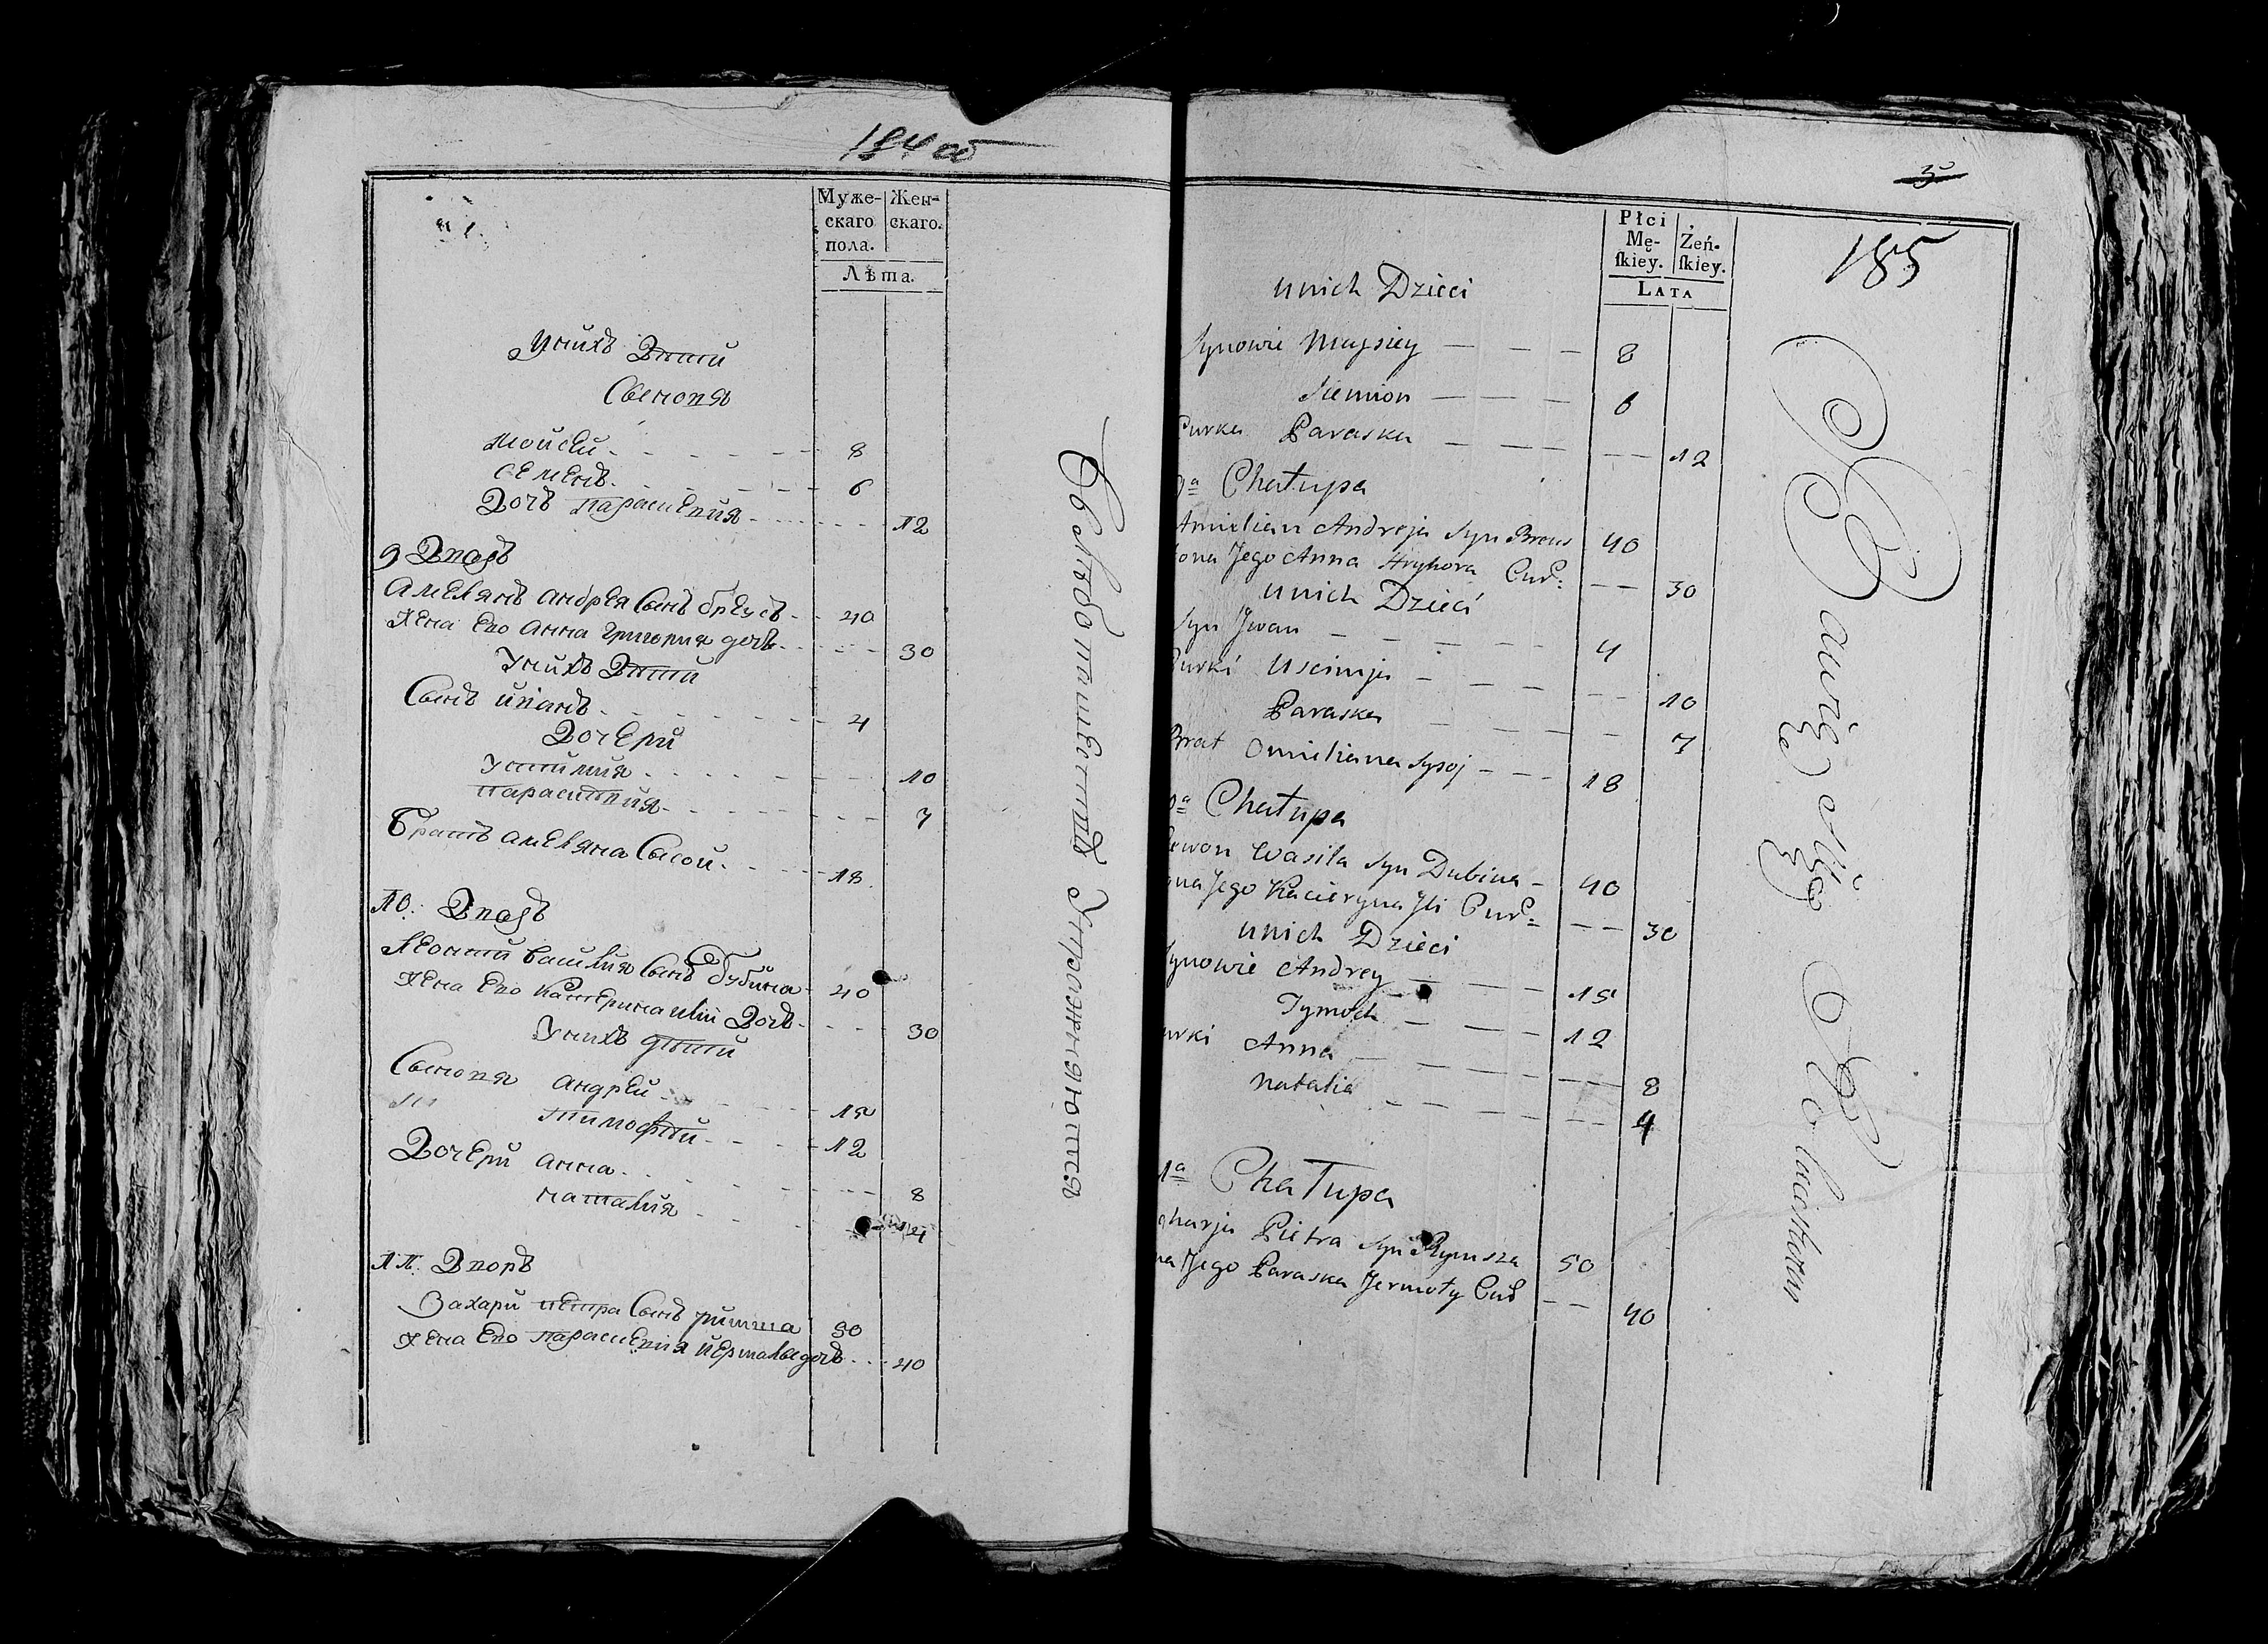 184 об
Муже-
скаго
пола.
Жен-
скаго.
Лѣта.
Унихъ Дѣти
Сыновя
Мойсей 8
Семенъ 6
Дочъ Параскевия 12
9 Дворъ
Амелянъ Андрея Сынъ бреусъ 40
Жена Его Анна Григория дочь 30
Унихъ Дѣти
Сынъ иванъ 4
Дочери
Устимия 10
Параскевия 7
Братъ амеляна Сысой 18
10: Дворъ
Леонтий василия Сынъ дубина 40
Жена Его Катерина илии Дочь 30
Унихъ дѣти
Сыновя андрей 15
тимофей 12
Дочери анна 8
наталия 4
11: Дворъ
Захарий петра Сынъ 50
Жена Его Параскевия дочь 40
Вхлѣбопашествѣ Упражняются
3
185
Płci
Mę-
ſkiey.
Żeń-
ſkiey.
LATA
unich Dzieci
Synowie Muysiey 8
Siemion 6
Curka Paraska 12
9ª Chałupa
Amielian Andreja Syn Breus 40
ona Jego Anna Hryhora Cur: 30
unich Dzieci
Syn Jwan 4
Curki Uscimja 10
Paraska 7
Brat Omieliana Sysoj 18
0ª Chałupa
Lewon Wasila Syn Dubina 40
ona Jego Kacieryna Jli Cur: 30
unich Dzieci
Synowie Andrey 15
Tymoch 12
urki Anna 8
Natalia 4
1ª Chałupa
charja Pietra Syn 50
na Jego Paraska Jermoły Cur 40
Bawię się Rolactwem